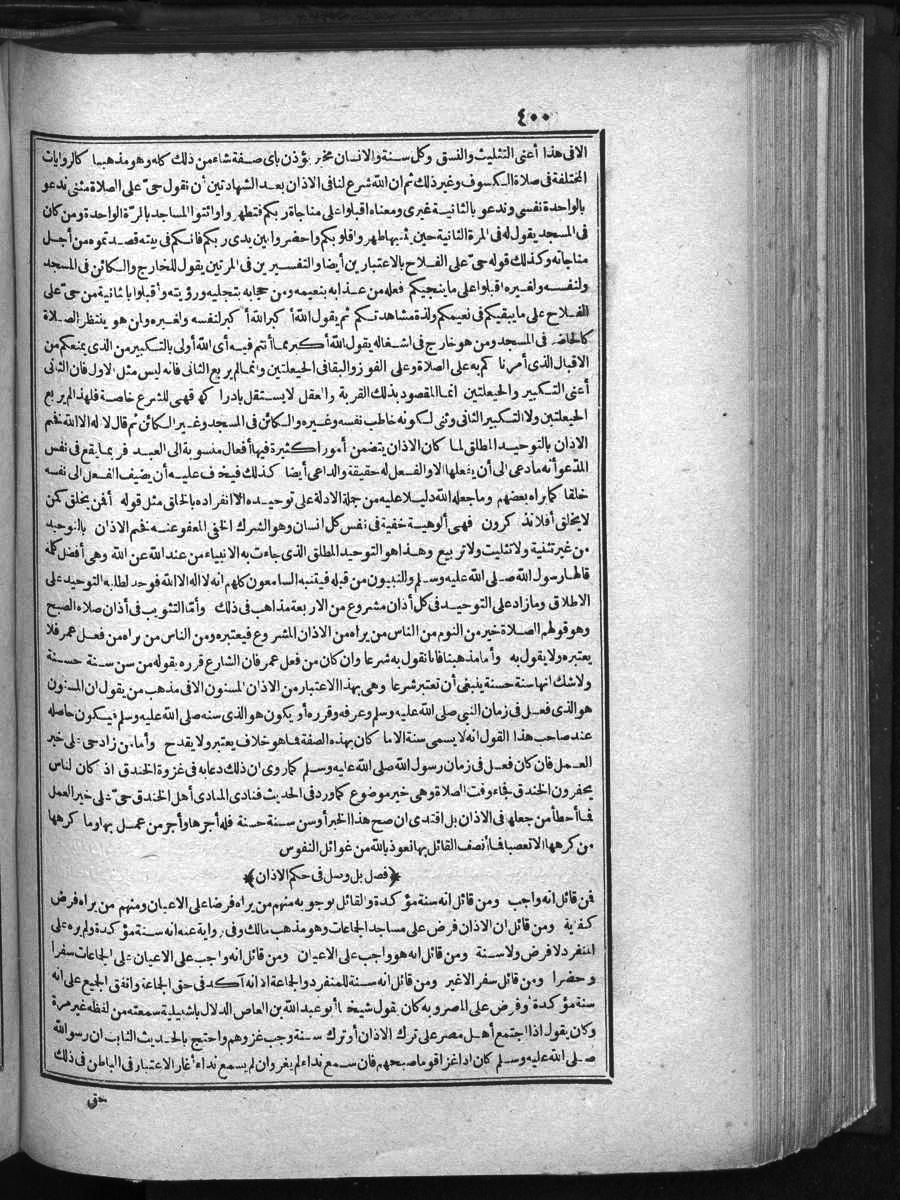 ٤٠٠
الا في هذا أعنى التثليث والنسق وكل سنة والانسان مخير يؤذن بأى صفة شاء من ذلك كله وهو مذهبنا كالروايات
المختلفة فى صلاة الكسوف وغير ذلك ثم ان الله شرع لنا فى الاذان بعد الشهادتين أن نقول حىّ على الصلاة مثنى ندعو
بالواحدة نفسى وندعو بالثانية غيرى ومعناه اقبلوا على مناجاة ربكم فتطهروا وائتوا المساجد بالمرّة الواحدة ومن كان
فى المسجد يقول له فى المرة الثانية حين ثنيها طهروا قلوبكم واحضروا بين يدى ربكم فانكم فى بيته قصدتموه من أجل
مناجاته وكذلك قوله حىّ على الفلاح بالاعتبارين أيضا والتفسيرين فى المرتين يقول للخارج والكائن فى المسجد
ولنفسه ولغيره اقبلوا على ما ينجيكم فعله من عذابه بنعيمه ومن حجابه بتجليه ورؤيته وأقبلوا بالثانية من حىّ على
الفلاح على ما يبقيكم فى نعيمكم ولذة مشاهدتكم ثم يقول الله أكبر الله أكبر لنفسه ولغيره ولمن هو ينتظر الصلاة
كالحاضر فى المسجد ومن هو خارج فى اشغاله يقول الله أكبر مما أنتم فيه أى الله أولى بالتكبير من الذى يمنعكم من
الاقبال الذى أمرنا كم به على الصلاة وعلى الفوز والبقا فى الحيعلتين وانما لم يربع الثانى فانه ليس مثل الاول فان الثانى
أعنى التكبير والحيعلتين انما المقصود بذلك القربة والعقل لا يستقل بادراكها فهى للشرع خاصة فلهذا لم يربع
الحيعلتين ولا التكبير الثانى وثنى لكونه خاطب نفسه وغيره والكائن فى المسجد وغير الكائن ثم قال لا اله الا الله فختم
الاذان بالتوحيد المطلق لما كان الاذان يتضمن أمورا كثيرة فيها أفعال منسوبة الى العبد فربما يقع فى نفس
المدعوّ أنه ما دعى الى أن يفعلها الا والفعل له حقيقة والداعى أيضا كذلك فيخاف عليه أن يضيف الفعل الى نفسه
خلقا كما يراه بعضهم وما جعله الله دليلا عليه من جملة الادلة على توحيده الا انفراده بالخلق مثل قوله أفمن يخلق كمن
لا يخلق أفلا تذكرون فهى ألوهية خفية فى نفس كل انسان وهو الشرك الخفى المعفو عنه فختم الاذان بالتوحيد
من غير تثنية ولا تثليث ولا تربيع وهذا هو التوحيد المطلق الذى جاءت به الانبياء من عند الله عن الله وهى أفضل كلة
قالها رسول الله صلى الله عليه وسلم والنبيون من قبله فيتنبه السامعون كلهم انه لا اله الا الله فوحد لطلبه التوحيد على
الاطلاق وما زاد على التوحيد فى كل أذان مشروع من الاربعة مذاهب فى ذلك وأمّا التثويب فى أذان صلاة الصبح
وهو قولهم الصلاة خير من النوم من الناس من يراه من الاذان المشروع فيعتبره ومن الناس من يراه من فعل عمر فلا
يعتبره ولا يقول به وأما مذهبنا فانا نقول به شرعا وان كان من فعل عمر فان الشارع قرره بقوله من سن سنة حسنة
ولا شك انها سنة حسنة ينبغى أن تعتبر شرعا وهى بهذا الاعتبار من الاذان المسنون الا فى مذهب من يقول ان المسنون
هو الذى فعل فى زمان النبى صلى الله عليه وسلم وعرفه وقرره أو يكون هو الذى سنه صلى الله عليه وسلم فيكون حاصله
عند صاحب هذا القول انه لا يسمى سنة الا ما كان بهذه الصفة فاهو خلاف يعتبر ولا يقدح وأما من زاد حى على خير
العمل فان كان فعل فى زمان رسول الله صلى الله عليه وسلم كما روى ان ذلك دعا به فى غزوة الخندق اذ كان الناس
يحفرون الخندق فجاء وقت الصلاة وهى خير موضوع كما ورد فى الحديث فنادى المنادى أهل الخندق حىّ على خير العمل
فما أخطأ من جعلها فى الاذان بل اقتدى ان صح هذا الخبر أو سن سنة حسنة فله أجرها وأجر من عمل بها وما كرهها
من كرهها الا تعصبا فما أنصف القائل بها نعوذ بالله من غوائل النفوس
﴿فصل بل وصل فى حكم الاذان﴾
فمن قائل انه واجب ومن قائل انه سنة مؤكدة والقائل بوجوبه منهم من يراه فرضا على الاعيان ومنهم من يراه فرض
كفاية ومن قائل ان الاذان فرض على مساجد الجماعات وهو مذهب مالك وفى رواية عنه انه سنة مؤكدة ولم يره على
المنفرد لا فرض ولا سنة ومن قائل انه هو واجب على الاعيان ومن قائل انه واجب على الاعيان على الجماعات سفرا
وحضرا ومن قائل سفر الاغير ومن قائل انه سنة للمنفرد والجماعة الا انه آكد فى حق الجماعة واتفق الجميع على انه
سنة مؤكدة وفرض على المصر وبه كان يقول شيخنا أبو عبد الله بن العاص الدلال باشبيلية سمعته من لفظه غير مرة
وكان يقول اذا اجتمع أهل مصر على ترك الاذان أو ترك سنة وجب غزوهم واحتج بالحديث الثابت ان رسول الله
صلى الله عليه وسلم كان اذا غزا قوما صبحهم فان سمع نداء لم يغر وان لم يسمع نداء أغار الاعتبار فى الباطن فى ذلك
حق